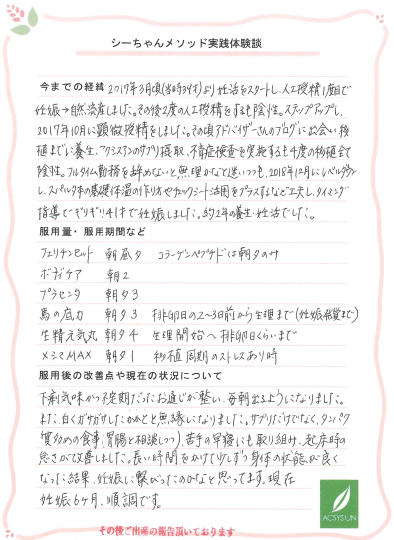 シーちゃんメソッド実践体験談
今までの経緯 2017年3月頃(当時39才)より妊活をスタートし、人工授精1度目で
妊娠→自然流産しました。その後2度の人工授精をするも陰性。ステップアップし、
2017年10月に顕微授精をしました。その頃アドバイザーさんのブログに出会い移
植までに養生、アクシスアンのサプリ摂取、不育症検査を実施するも4度の移植全て
陰性。フルタイム勤務を辞めないと無理かなと迷いつつも、2018年12月にレベルダウン
し、スペルタ本の基礎体温の作り方やチェックシート活用をプラスするなど工夫し、タイミング
指導でギリギリ41才で妊娠しました。約2年の養生・妊活でした。
服用量・服用期間など
フェリチンセット 朝昼夕 コラーゲンペプチドは朝夕のみ
ボディケア 朝2
プラセンタ 朝夕3
馬の底力 朝夕3 排卵日の2~3日前から生理まで(妊娠発覚まで)
生精元気丸 朝夕4 生理開始〜排卵日くらいまで
メシマMAX 朝夕1 移植周期のストレスあり時
服用後の改善点や現在の状況について
下痢気味かつ不定期だったお通じが整い、毎朝出るようになりました。
また、白くガサガサしたかかとと無縁になりました。サプリだけでなく、タンパク
質多めの食事(胃腸と相談しつつ)、苦手の早寝にも取り組み、起床時の
怠さが改善しました。長い時間をかけて少しずつ身体の状態が良く
なった結果、妊娠に繋がったのかなと思ってます。現在
妊娠6ヶ月、順調です。
ACSYSUN
その後ご出産の報告頂いております